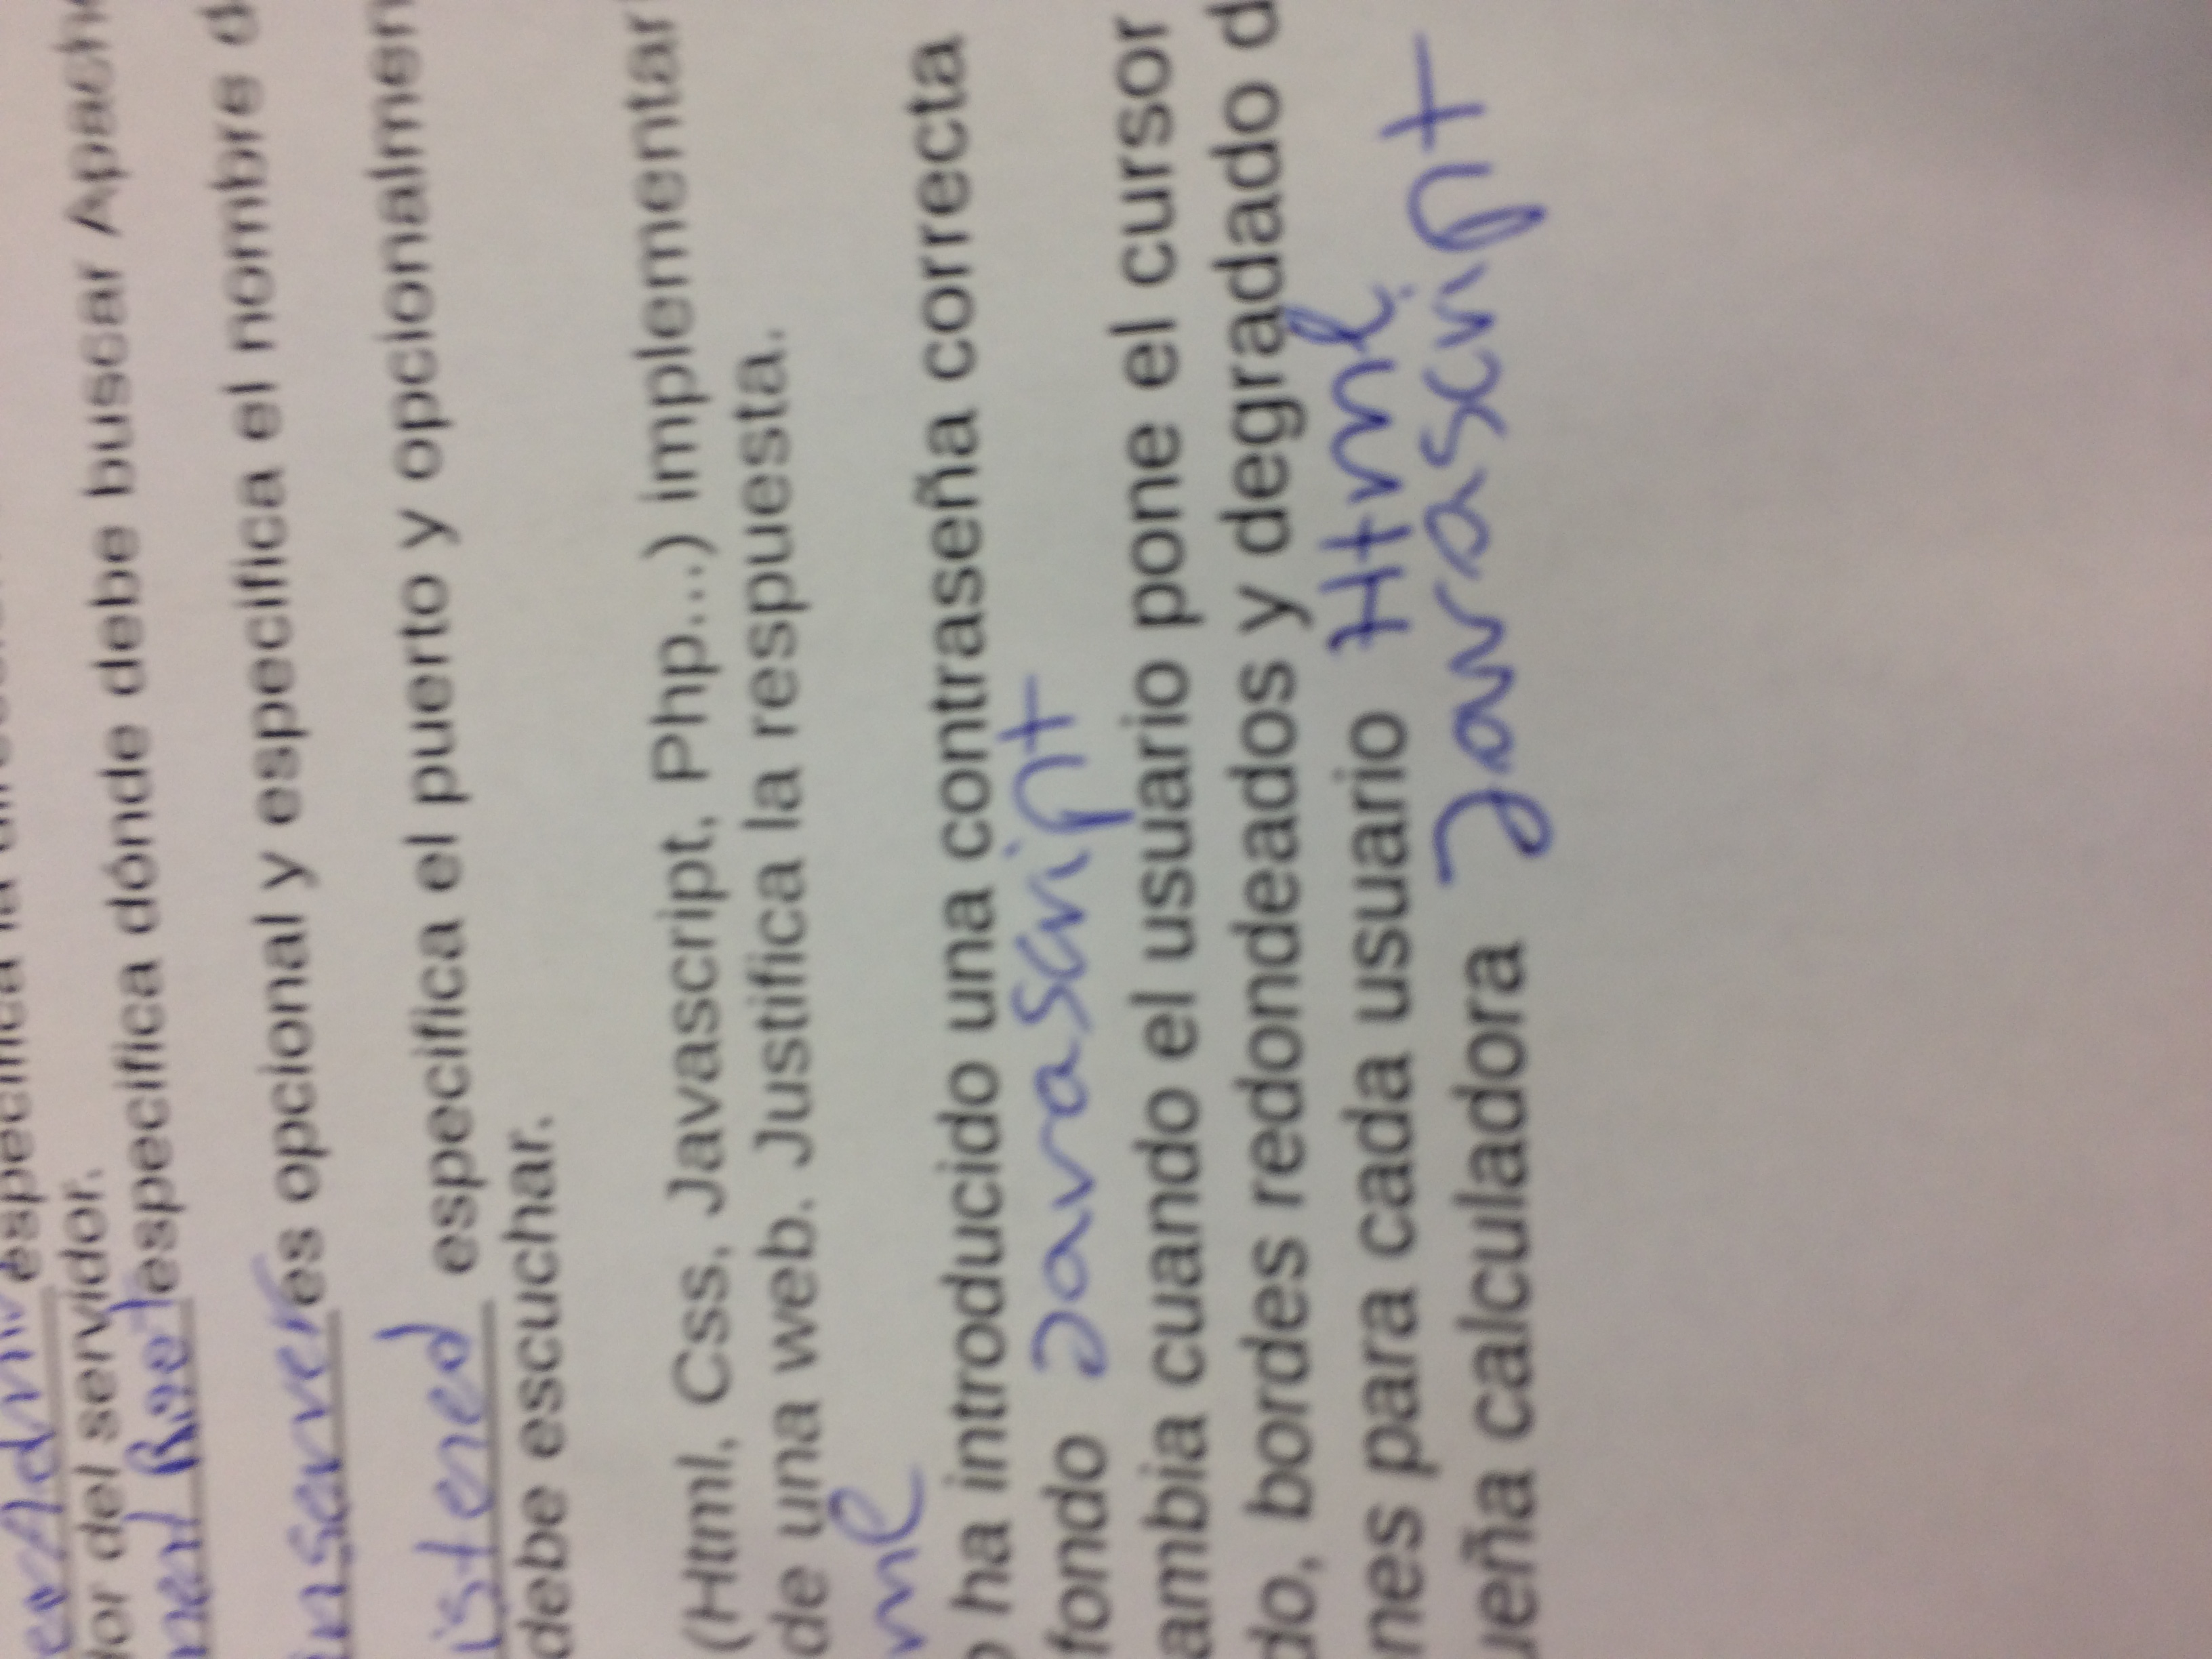 especifica la
del servidor.
Root especifica dónde debe buscar Apache
inserver es opcional y especifica el nombre
istened especifica el puerto y opcionalmen
debe escuchar.
(Html, Css, Javascript, Php...) implementar
de una web. Justifica la respuesta.
ml
o ha introducido una contraseña correcta
fondo Javascript
ambia cuando el usuario pone el cursor
do, bordes redondeados y degradado d
nes para cada usuario Html
ueña calculadora Javascript